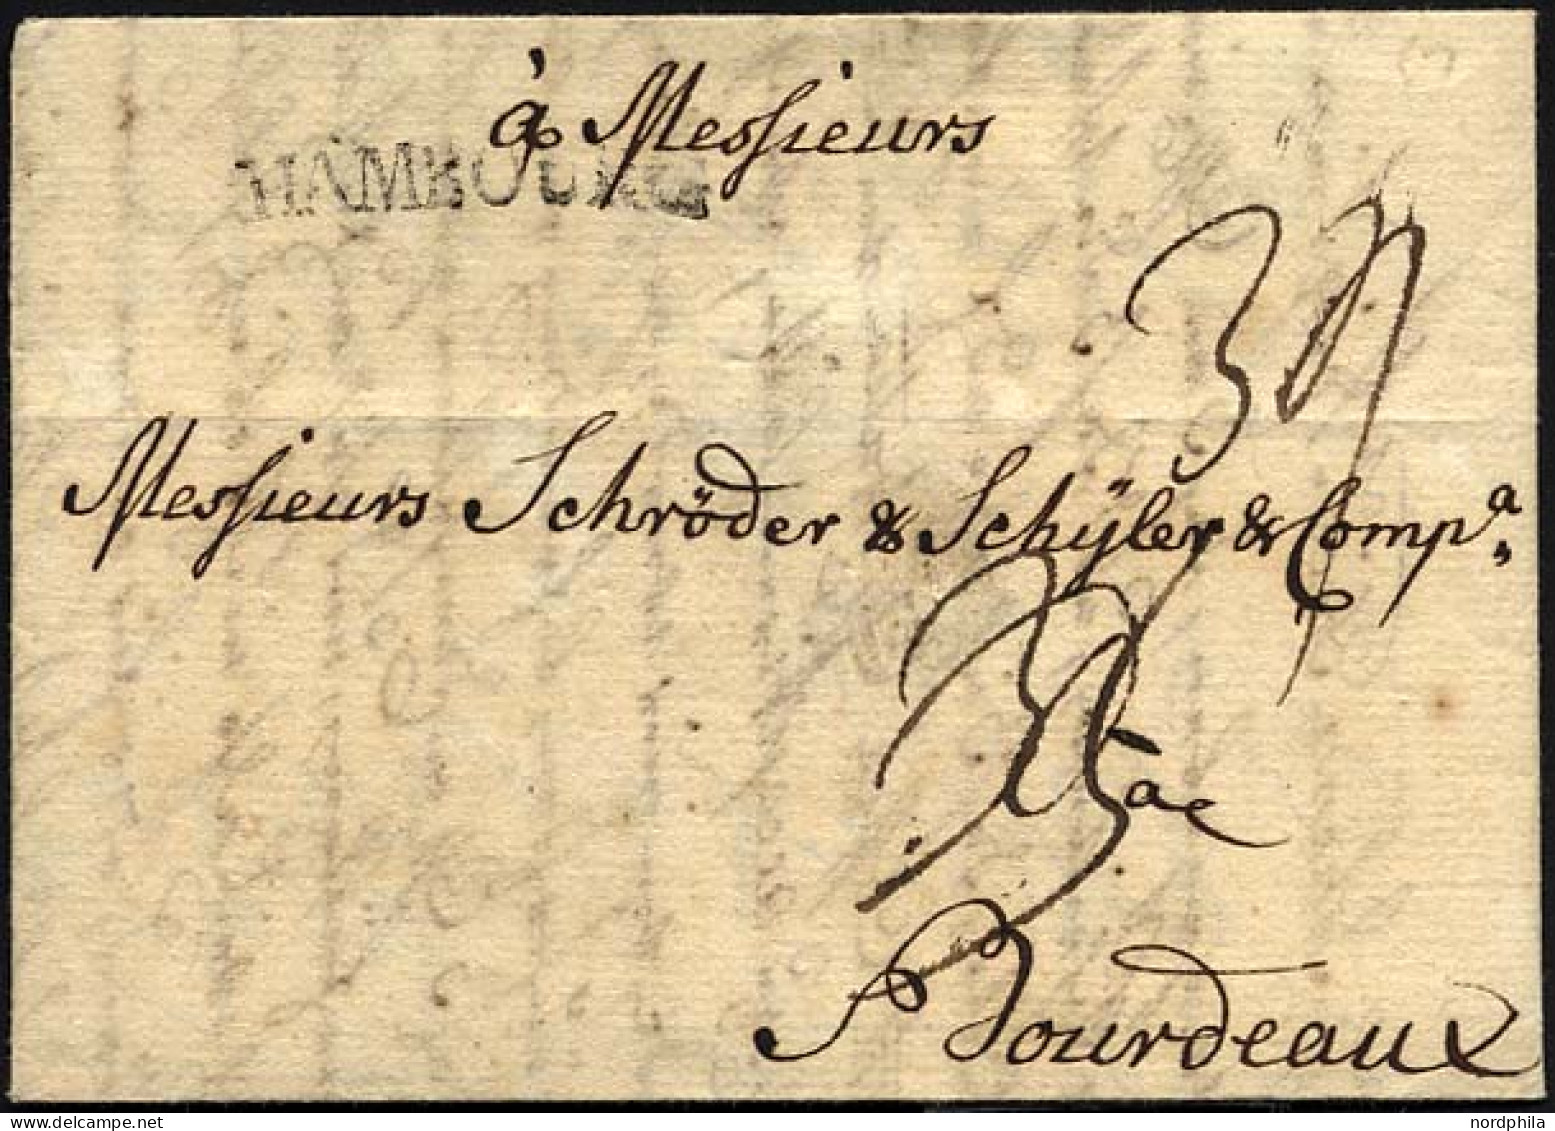 à Messieurs
HAMBOURG
Messieurs Schröder & Schÿler & Comp.ª
a
Bourdeaux
nordphila